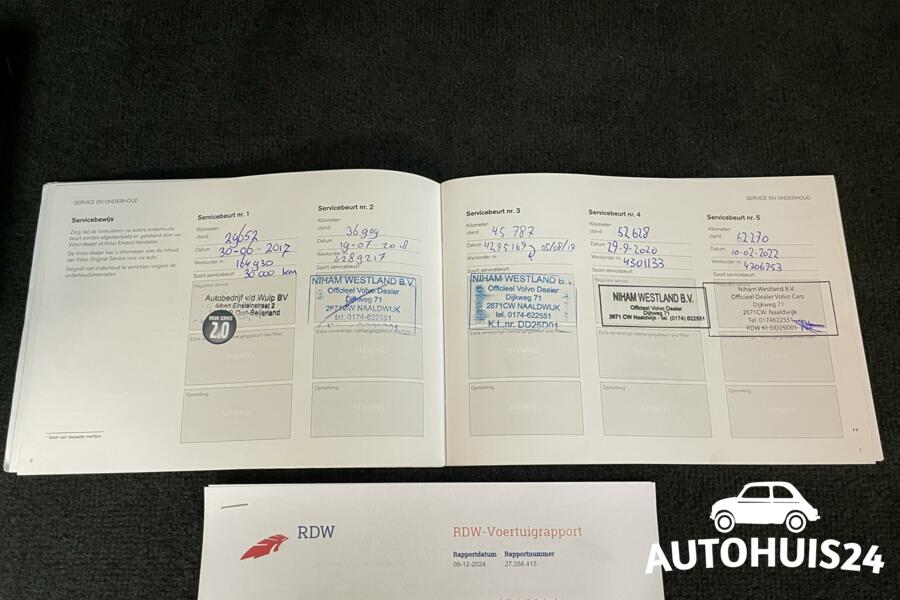 SERVICE EN ONDERHOUD
Servicebewijs
Zorg dat de formulieren na iedere onderhouds-
beurt worden afgestempeld en getekend door uw
Volvo-dealer of Volvo Erkend Hersteller.
De Volvo-dealer kan u informeren over de inhoud
van Volvo Original Service voor uw auto.
Vergeet niet onderhoud te verrichten volgens de
onderhoudsintervallen.
8
Servicebeurt nr. 1
Kilometer-
stand 29652
Datum 30-06-2017
Werkorder nr. 164930
Soort servicebeurt 30 000 km
Reguliere service
Autobedrijf v/d Wulp BV
Albert Einsteinstraat 2
Oud-Beijerland
VOLVO SERVICE
2.0
STEMPEL
Opmerking
STEMPEL
Servicebeurt nr. 2
Kilometer-
stand 36909
Datum 19-07-2018
Werkorder nr. 4289217
Soort servicebeurt
NIHAM WESTLAND B.V.
Officieel Volvo Dealer
Dijkweg 71
2671CW NAALDWIJK
tel. 0174-622551
STEMPEL
Opmerking
STEMPEL
SERVICE EN ONDERHOUD
Servicebeurt nr. 3
Kilometer-
stand 45 787
Datum 4295169 05/08/19
Werkorder nr.
Soort servicebeurt
NIHAM WESTLAND B.V.
Officieel Volvo Dealer
Dijkweg 71
2671CW NAALDWIJK
tel. 0174-622551
K.I. nr. DD25D01
STEMPEL
Opmerking
STEMPEL
Servicebeurt nr. 4
Kilometer-
stand 52628
Datum 29-9-2020
Werkorder nr. 4301133
Soort servicebeurt
Reguliere service
NIHAM WESTLAND B.V.
Officieel Volvo Dealer
Dijkweg 71
2671 CW Naaldwijk - Tel. (0174) 622551
STEMPEL
Opmerking
STEMPEL
Servicebeurt nr. 5
Kilometer-
stand 62270
Datum 10-02-2022
Werkorder nr. 4306753
Soort servicebeurt
Niham Westland B.V.
Officieel Dealer Volvo Cars
Dijkweg 71
2671CW Naaldwijk
Tel. 0174622551
RDW KI: DD25D01
STEMPEL
Opmerking
STEMPEL
7
RDW
RDW-Voertuigrapport
Rapportdatum Rapportnummer
09-12-2024 27.356.415
AUTOHUIS24